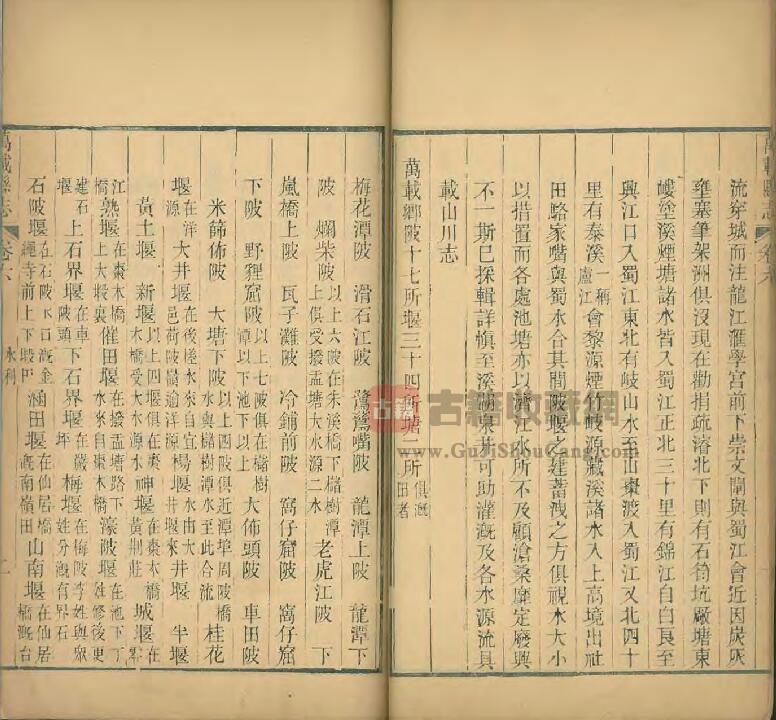 流穿城而注龍江滙學宮前下崇文閘與蜀江會近因炭灰
壅塞筆架洲俱沒現在勸捐疏濬北下則有石筍坑厰塘東
崚塗溪煙塘諸水皆入蜀江正北三十里有錦江自白艮至
興江口入蜀江東北有岐山水至山棗渡入蜀江又北四十
里有泰溪一稱盧江會黎源煙竹岐源藏溪諸水入上高境出社
田駱家嘴與蜀水合其間陂堰之建蓄洩之方俱視水大小
以措置而各處池塘亦以濟江水所不及顧滄桑靡定廢興
不一斯已採輯詳慎至溪湖泉井可助灌溉及各水源流具
載山川志
萬載鄉陂十七所堰三十四所塘二所俱溉田者
萬載縣志 卷六 水利 二
梅花潭陂 滑石江陂 鵞鵞嘴陂 龍潭上陂 龍潭下
陂 爛柴陂以上六陂在朱溪橋下櫧樹潭上俱受撥盂塘大水源二水 老虎江陂 下
嵐橋上陂 瓦子灘陂 冷鋪前陂 窩仔窟陂 窩仔窟
下陂 野狸窟陂以上七陂俱在櫧樹潭以下池下以上 大佈頭陂 車田陂
米篩佈陂 大塘下陂以上四陂俱近潭埠周陂橋水與櫧樹潭水至此合流 桂花
堰在洋源 大井堰在後槎水來自宜邑荷陂嶺逾洋源 楊堰水由大井堰來 井堰 半堰
黃土堰 新堰以上四堰俱在棗木橋受大水源水 神堰在棗木橋黃荆莊 城堰在
江橋 熟堰在棗木橋上大塅裏 催田堰在撥盂塘路下水來自棗木橋 濠陂堰在池下丁姓修後更
建石堰 上石界堰在車陂頭 下石界堰在嚴坪 梅堰在梅陂李姓與眾姓分溉有界石
石陂堰在石陂下口溉金繩寺前上下塅田 涵田堰在仙居橋溉南嶺田 山南堰在仙居橋溉台